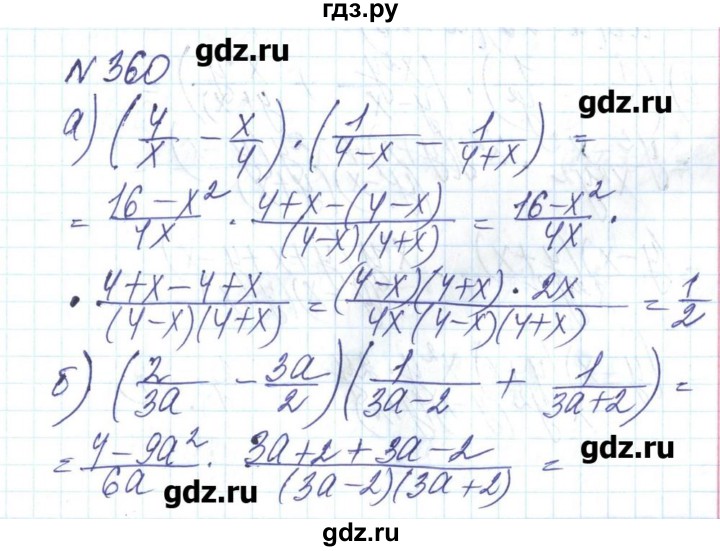 гдз.ру
№ 360 gdz.ru
gdz.ru
а) (4/x − x/4) · (1/(4−x) − 1/(4+x)) =
= (16−x²)/4x · (4+x−(4−x))/((4−x)(4+x)) = (16−x²)/4x ·
· (4+x−4+x)/((4−x)(4+x)) = ((4−x)(4+x)·2x)/(4x(4−x)(4+x)) = 1/2
б) (2/3a − 3a/2)(1/(3a−2) + 1/(3a+2)) =
= (4−9a²)/6a · (3a+2+3a−2)/((3a−2)(3a+2)) =
gdz.ru
gdz.ru
gdz.ru